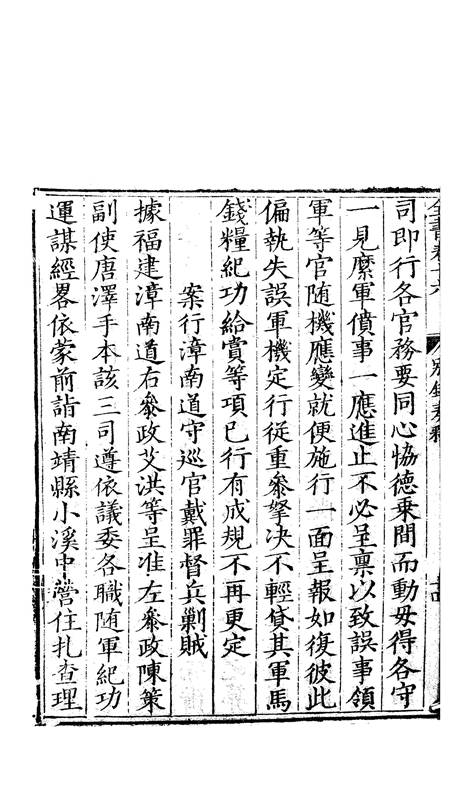 全書卷十六 別錄奏疏
司即行各官務要同心恊德乗間而動毋得各守
一見縻軍僨事一應進止不必呈稟以致誤事領
軍等官随機應變就便施行一面呈報如復彼此
偏執失誤軍機定行従重叅拏决不輕貸其軍馬
錢糧紀功給賞等項已行有成規不再更定
案行漳南道守巡官戴罪督兵剿賊
據福建漳南道右叅政艾洪等呈准左叅政陳策
副使唐澤手本該三司遵依議委各職随軍紀功
運謀經畧依蒙前詣南靖縣小溪中營住扎查理